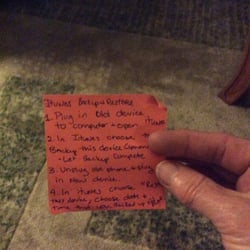 Itunes Backup + Restore
1. Plug in old device
to computer + open itunes
2. In Itunes choose to
Backup this device
- Let Backup Complete
3. Unplug old phone + plug
in new device.
4. In itunes choose
this device, choose date +
time that you backed up